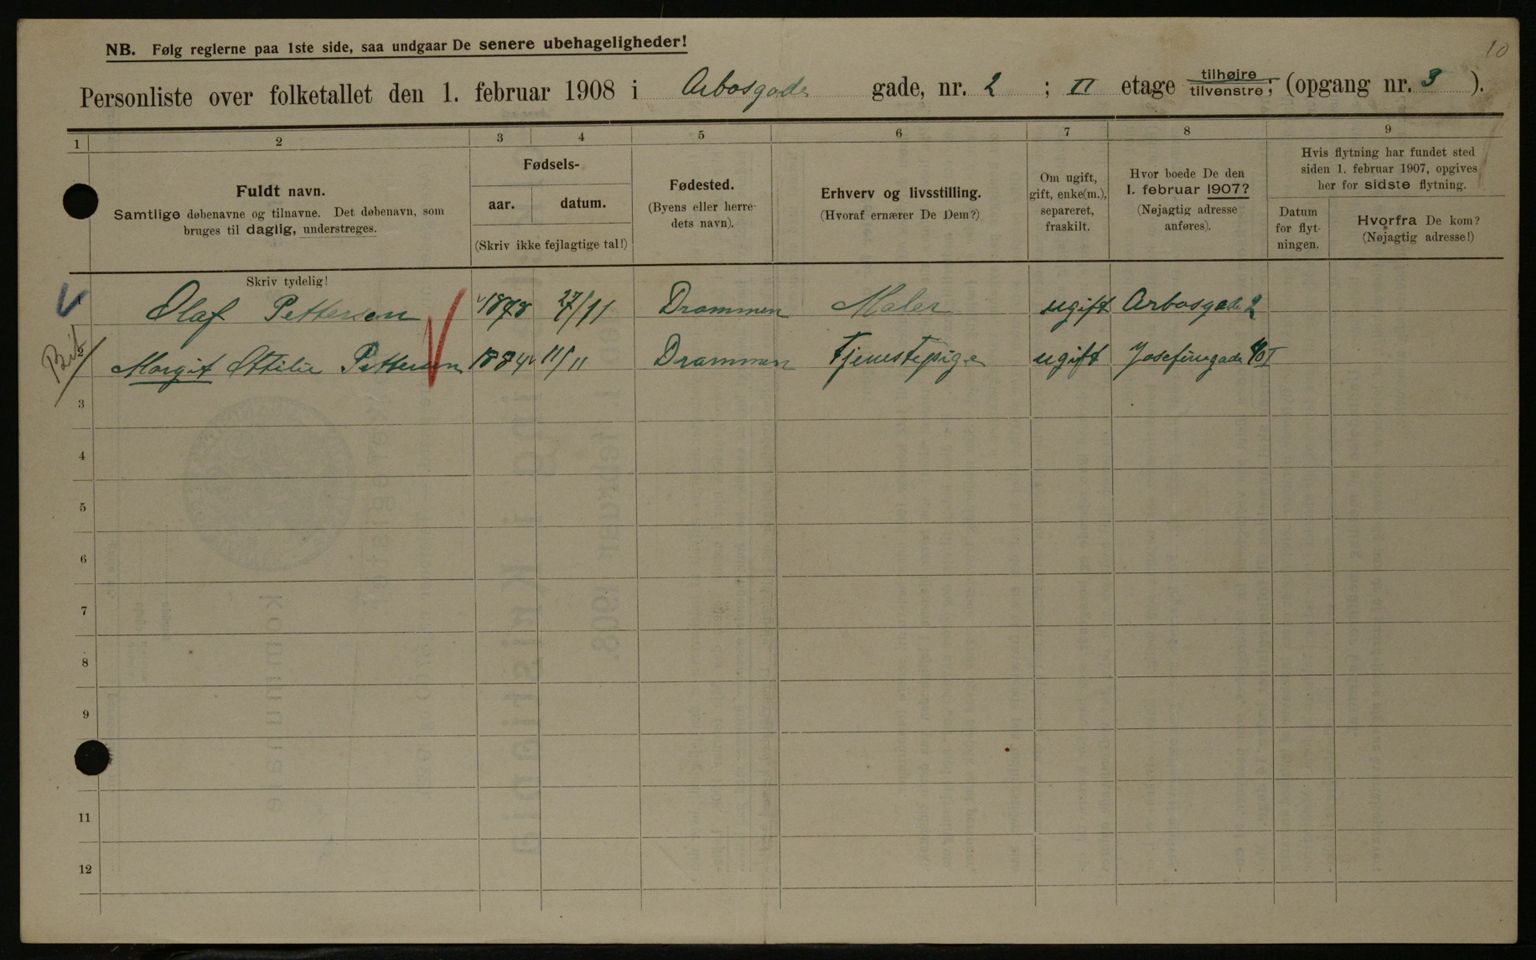 10
NB. Følg reglerne paa 1ste side, saa undgaar De senere ubehageligheder!
Personliste over folketallet den 1. februar 1908 i Arbosgade gade, nr. 2 ; II etage tilhøjre tilvenstre; (opgang nr. 3 ).
1 2 3 4 5 6 7 8 9
Fuldt navn.
Samtlige døbenavne og tilnavne. Det døbenavn, som
bruges til daglig, understreges.
Skriv tydelig!
Fødsels-
aar. datum.
(Skriv ikke fejlagtige tal!)
Fødested.
(Byens eller herre-
dets navn).
Erhverv og livsstilling.
(Hvoraf ernærer De Dem?)
Om ugift,
gift, enke(m.),
separeret,
fraskilt.
Hvor boede De den
1. februar 1907?
(Nøjagtig adresse
anføres).
Hvis flytning har fundet sted
siden 1. februar 1907, opgives
her for sidste flytning.
Datum
for flyt-
ningen.
Hvorfra De kom?
(Nøjagtig adresse!)
Olaf Pettersen 1878 27/11 Drammen Maler ugift Arbosgade 2
Margit Ottilie Pettersen 1884 11/11 Drammen Tjenestepige ugift Josefinegade 40 I
3
4
5
6
7
8
9
11
12